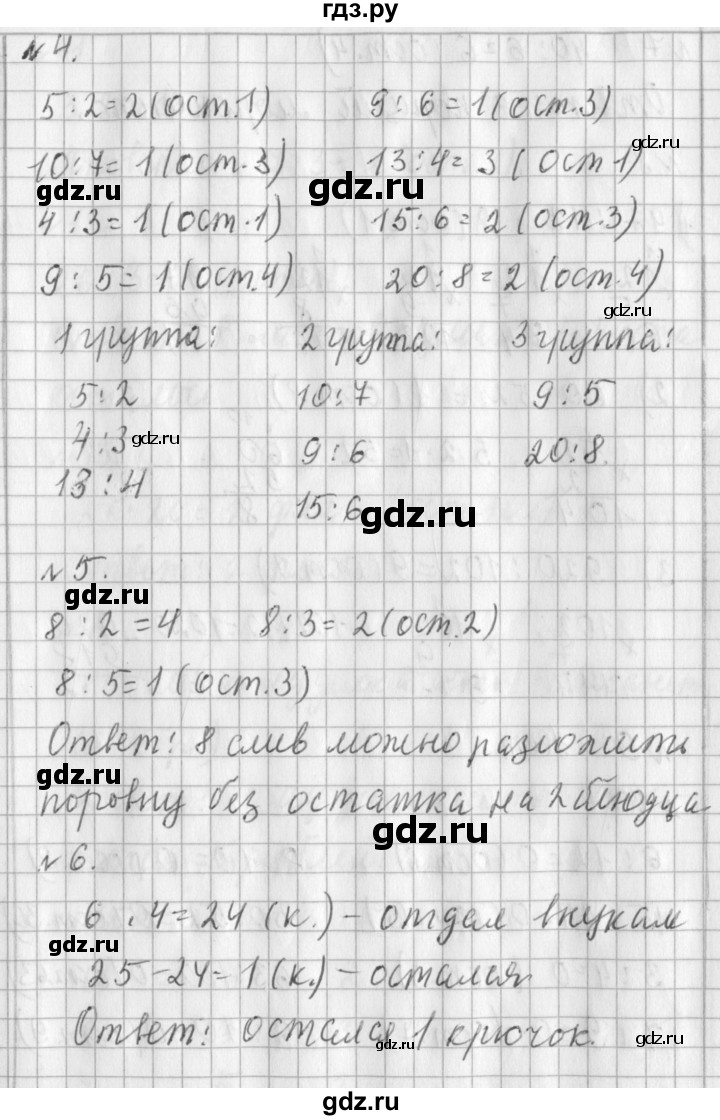 гдз.ру
№4.
5:2=2(ост.1) 9:6=1(ост.3)
10:7=1(ост.3) 13:4=3(ост1)
gdz.ru gdz.ru gdz.ru
4:3=1(ост.1) 15:6=2(ост.3)
9:5=1(ост.4) 20:8=2(ост.4)
gdz.ru
1группа: 2группа: 3группа:
5:2 10:7 9:5
4:3 9:6 20:8.
gdz.ru
13:4 15:6
gdz.ru
№5.
gdz.ru
8:2=4 8:3=2(ост.2)
8:5=1(ост.3)
Ответ: 8 слив можно разложить
gdz.ru
поровну без остатка на 2 блюдца
gdz.ru
№6.
6·4=24(к.)-отдал внукам
gdz.ru
25-24=1(к.)-остался
Ответ: остался 1 крючок.
gdz.ru gdz.ru
gdz.ru